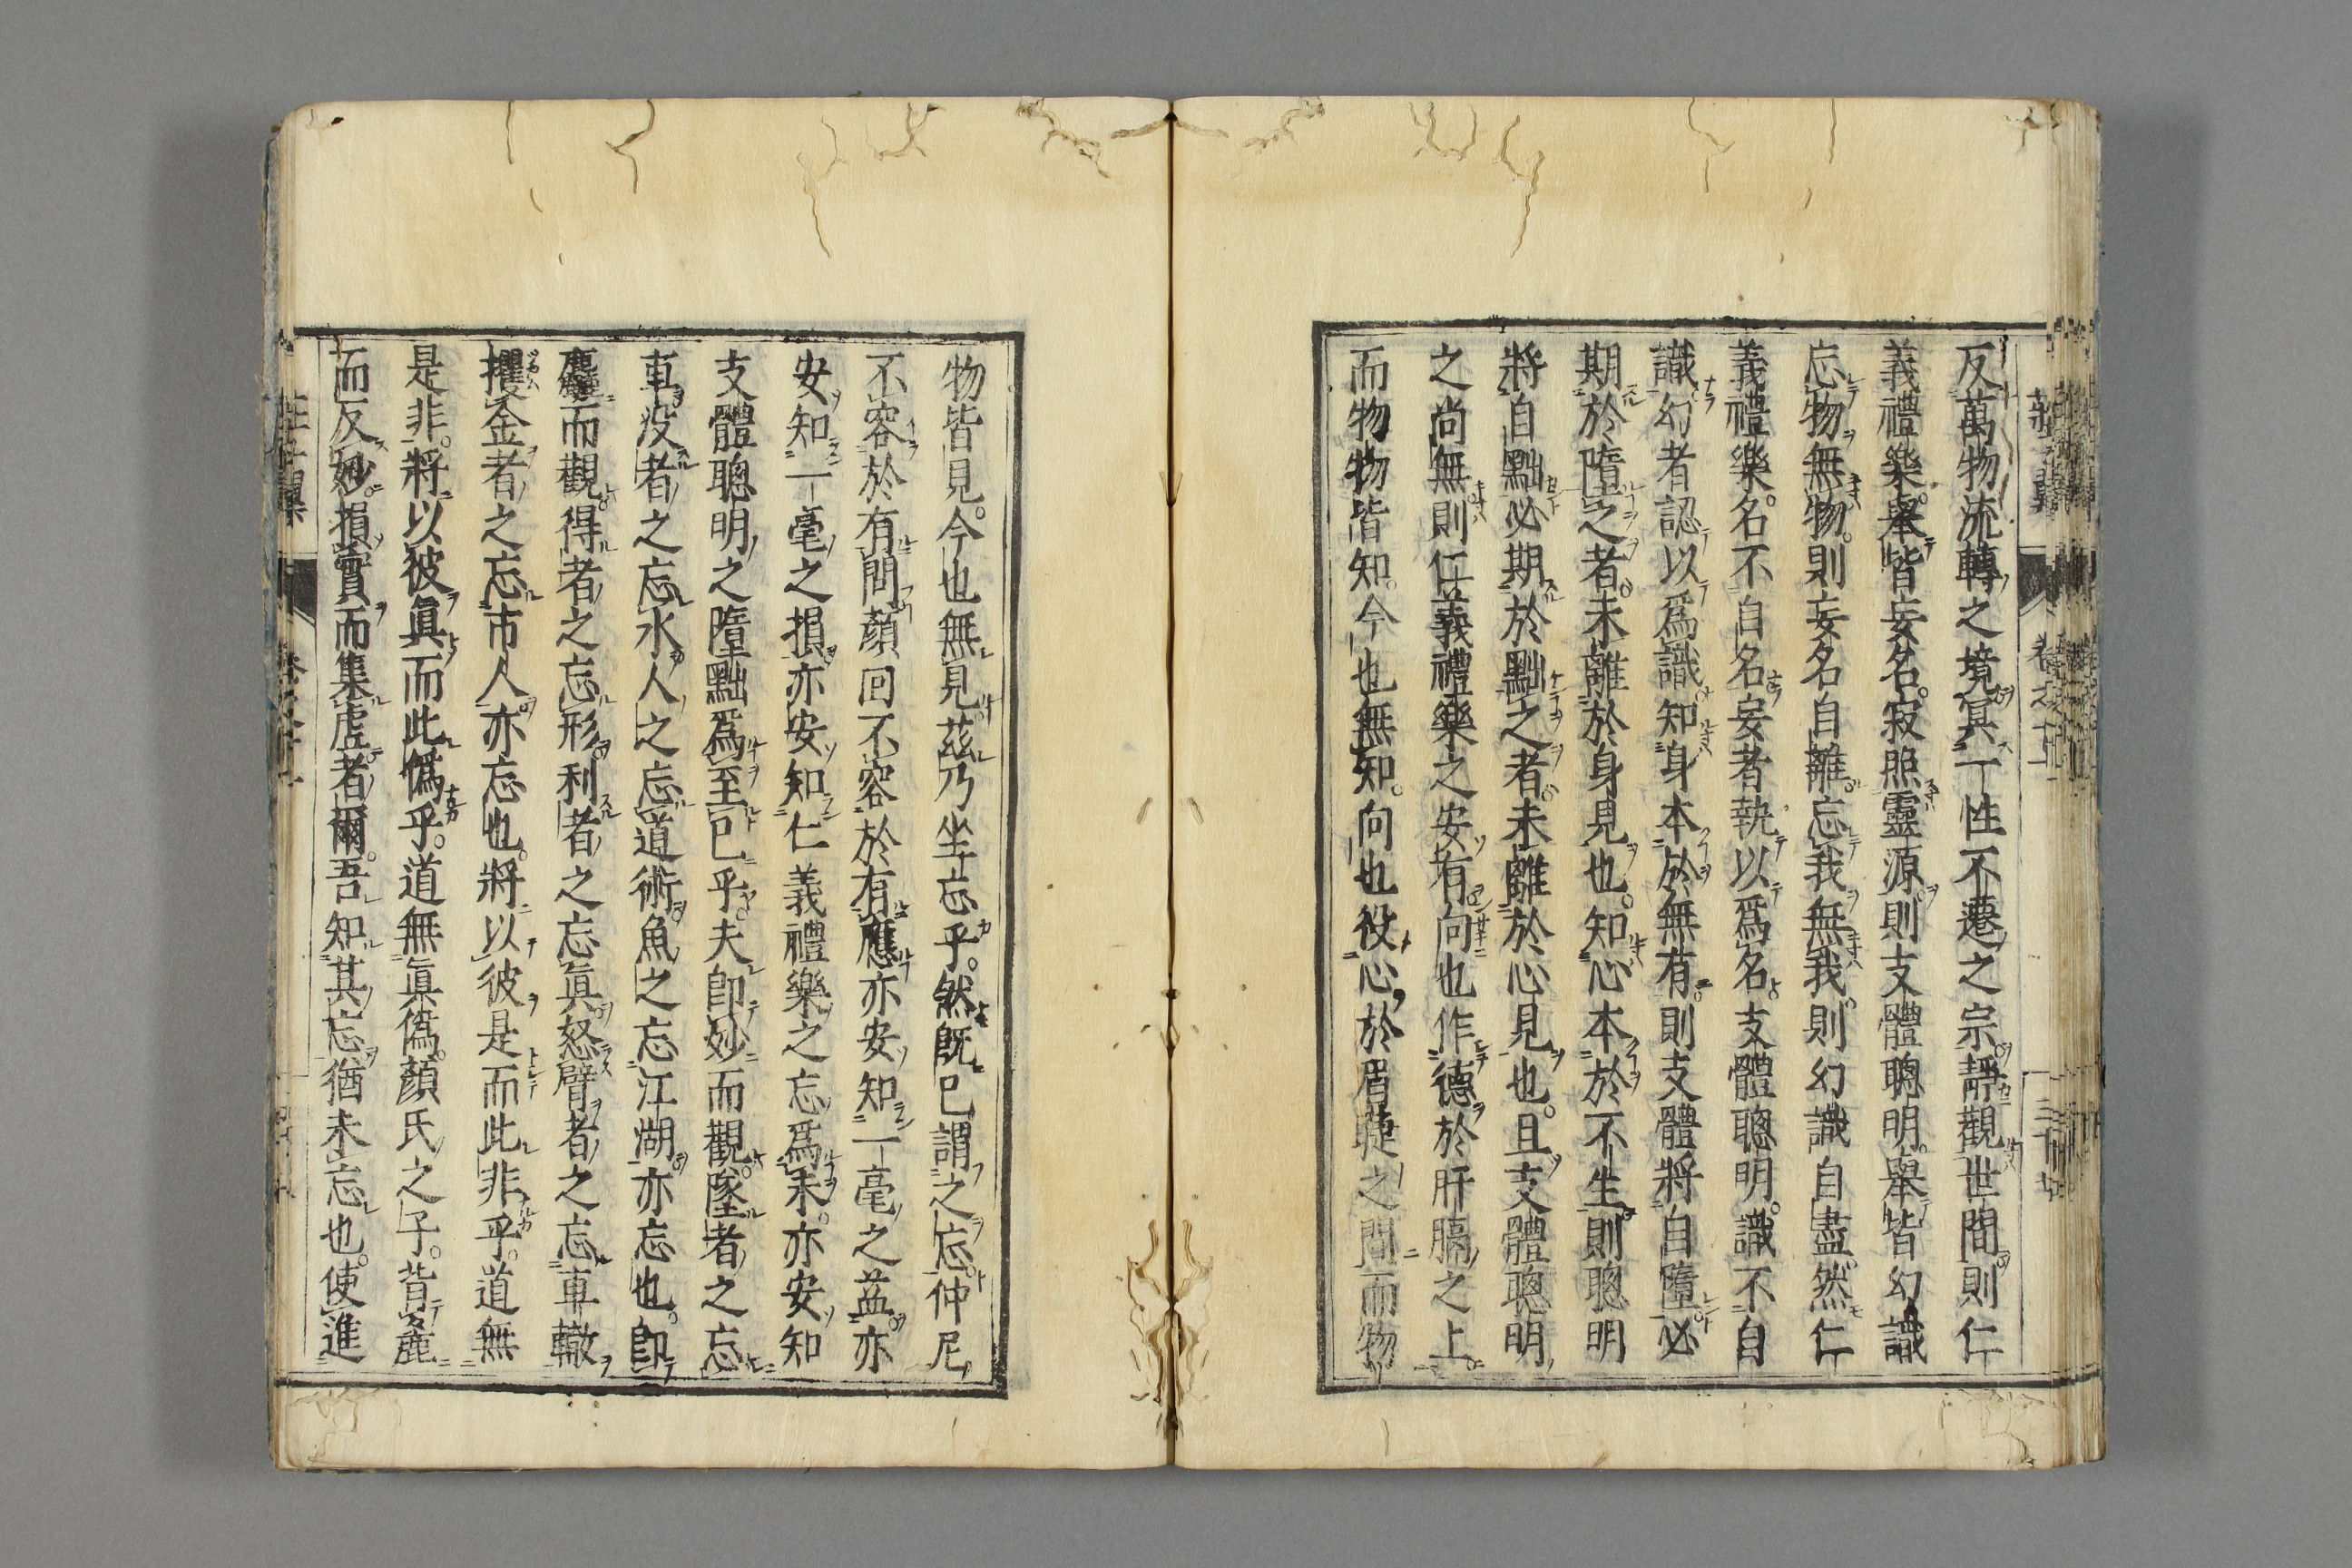 反萬物流轉之境冥一性不遷之宗靜觀世間則仁
義禮樂舉皆妄名寂照靈源則支體聰明舉皆幻識
忘物無物則妄名自離忘我無我則幻識自盡然仁
義禮樂名不自名妄者執以爲名支體聰明識不自
識幻者認以爲識知身本於無有則支體將自墮必
期於墮之者未離於身見也知心本於不生則聰明
將自黜必期於黜之者未離於心見也且支體聰明
之尚無則仁義禮樂之安有向也作德於肝膈之上
而物物皆知今也無知向也役心於眉睫之間而物
物皆見今也無見茲乃坐忘乎然既已謂之忘仲尼
不容於有問顏回不容於有應亦安知一毫之益亦
安知一毫之損亦安知仁義禮樂之忘爲未亦安知
支體聰明之墮黜爲至已乎夫即妙而觀墜者之忘
車没者之忘水人之忘道術魚之忘江湖亦忘也即
麤而觀得者之忘形利者之忘眞怒臂者之忘車轍
攫金者之忘市人亦忘也將以彼是而此非乎道無
是非將以彼眞而此僞乎道無眞僞顏氏之子背麤
而反妙損實而集虛者爾吾知其忘猶未忘也使進